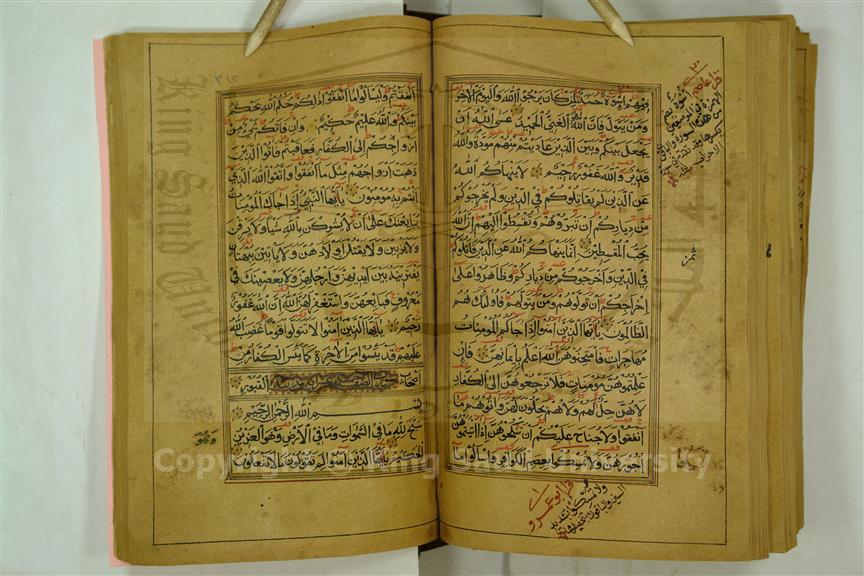 فيهم اسوة حسنة لمن كان يرجوا الله واليوم الاخر
ومن يتول فان الله هو الغني الحميد عسى الله ان
يجعل بينكم وبين الذين عاديتم منهم مودة والله
قدير والله غفور رحيم لا ينهاكم الله
عن الذين لم يقاتلوكم في الدين ولم يخرجوكم
من دياركم ان تبروهم وتقسطوا اليهم ان الله
يحب المقسطين انما ينهاكم الله عن الذين قاتلوكم
في الدين واخرجوكم من دياركم وظاهروا على
اخراجكم ان تولوهم ومن يتولهم فاولئك هم
الظالمون يايها الذين امنوا اذا جاءكم المومنات
مهاجرات فامتحنوهن الله اعلم بايمانهن فان
علمتموهن مومنات فلا ترجعوهن الى الكفار
لا هن حل لهم ولا هم يحلون لهن واتوهم ما
انفقوا ولا جناح عليكم ان تنكحوهن اذا اتيتموهن
اجورهن ولا تمسكوا بعصم الكوافر واسالوا ما
قرا ابو عمرو
ولا تمسكوا بتشديد
انفقتم وليسالوا ما انفقوا ذلكم حكم الله يحكم
بينكم والله عليم حكيم وان فاتكم شي من
ازواجكم الى الكفار فعاقبتم فاتوا الذين
ذهبت ازواجهم مثل ما انفقوا واتقوا الله الذي
انتم به مومنون يايها النبي اذا جاءك المومنات
يبايعنك على ان لا يشركن بالله شيا ولا يسرقن
ولا يزنين ولا يقتلن اولادهن ولا ياتين ببهتان
يفترينه بين ايديهن وارجلهن ولا يعصينك في
معروف فبايعهن واستغفر لهن الله ان الله غفور
رحيم يايها الذين امنوا لا تتولوا قوما غضب الله
عليهم قد يئسوا من الاخرة كما يئس الكفار من
اصحاب القبور سورة الصف
بسم الله الرحمن الرحيم
سبح لله ما في السموات وما في الارض وهو العزيز
الحكيم يايها الذين امنوا لم تقولون ما لا تفعلون
Copyright © King Saud University